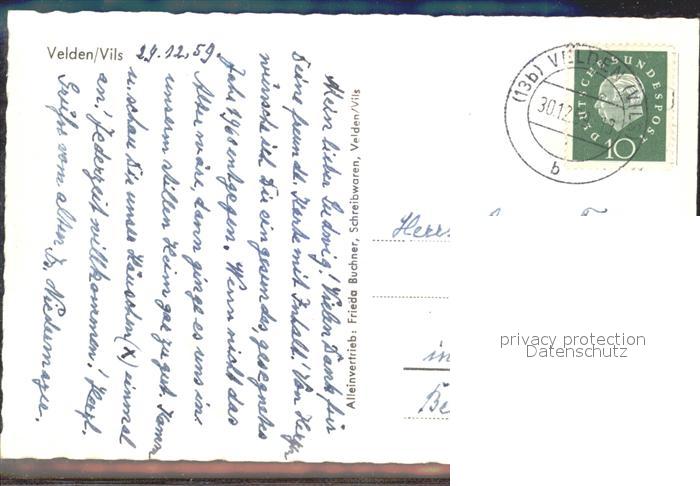 Velden/Vils 29.12.59
Mein lieber Ludwig! Vielen Dank für
Deine freundl. Karte mit Inhalt! Von Herzen
wünsche ich Dir ein gesundes, gesegnetes
Jahr 1960 entgegen. Wenn nicht das
Alter wäre, dann ginge es uns in
unserm stillen Heim gar zu gut. Komm
u. schau Dir unser Häuschen (x) einmal
an! Jederzeit willkommen! Herzl.
Grüße vom alten Dr. Niedermayer.
Alleinvertrieb: Frieda Buchner, Schreibwaren, Velden/Vils
(13b) VELDEN (VILS)
30.12.
b
DEUTSCHE BUNDESPOST
10
Herrn
in
Be
privacy protection
Datenschutz